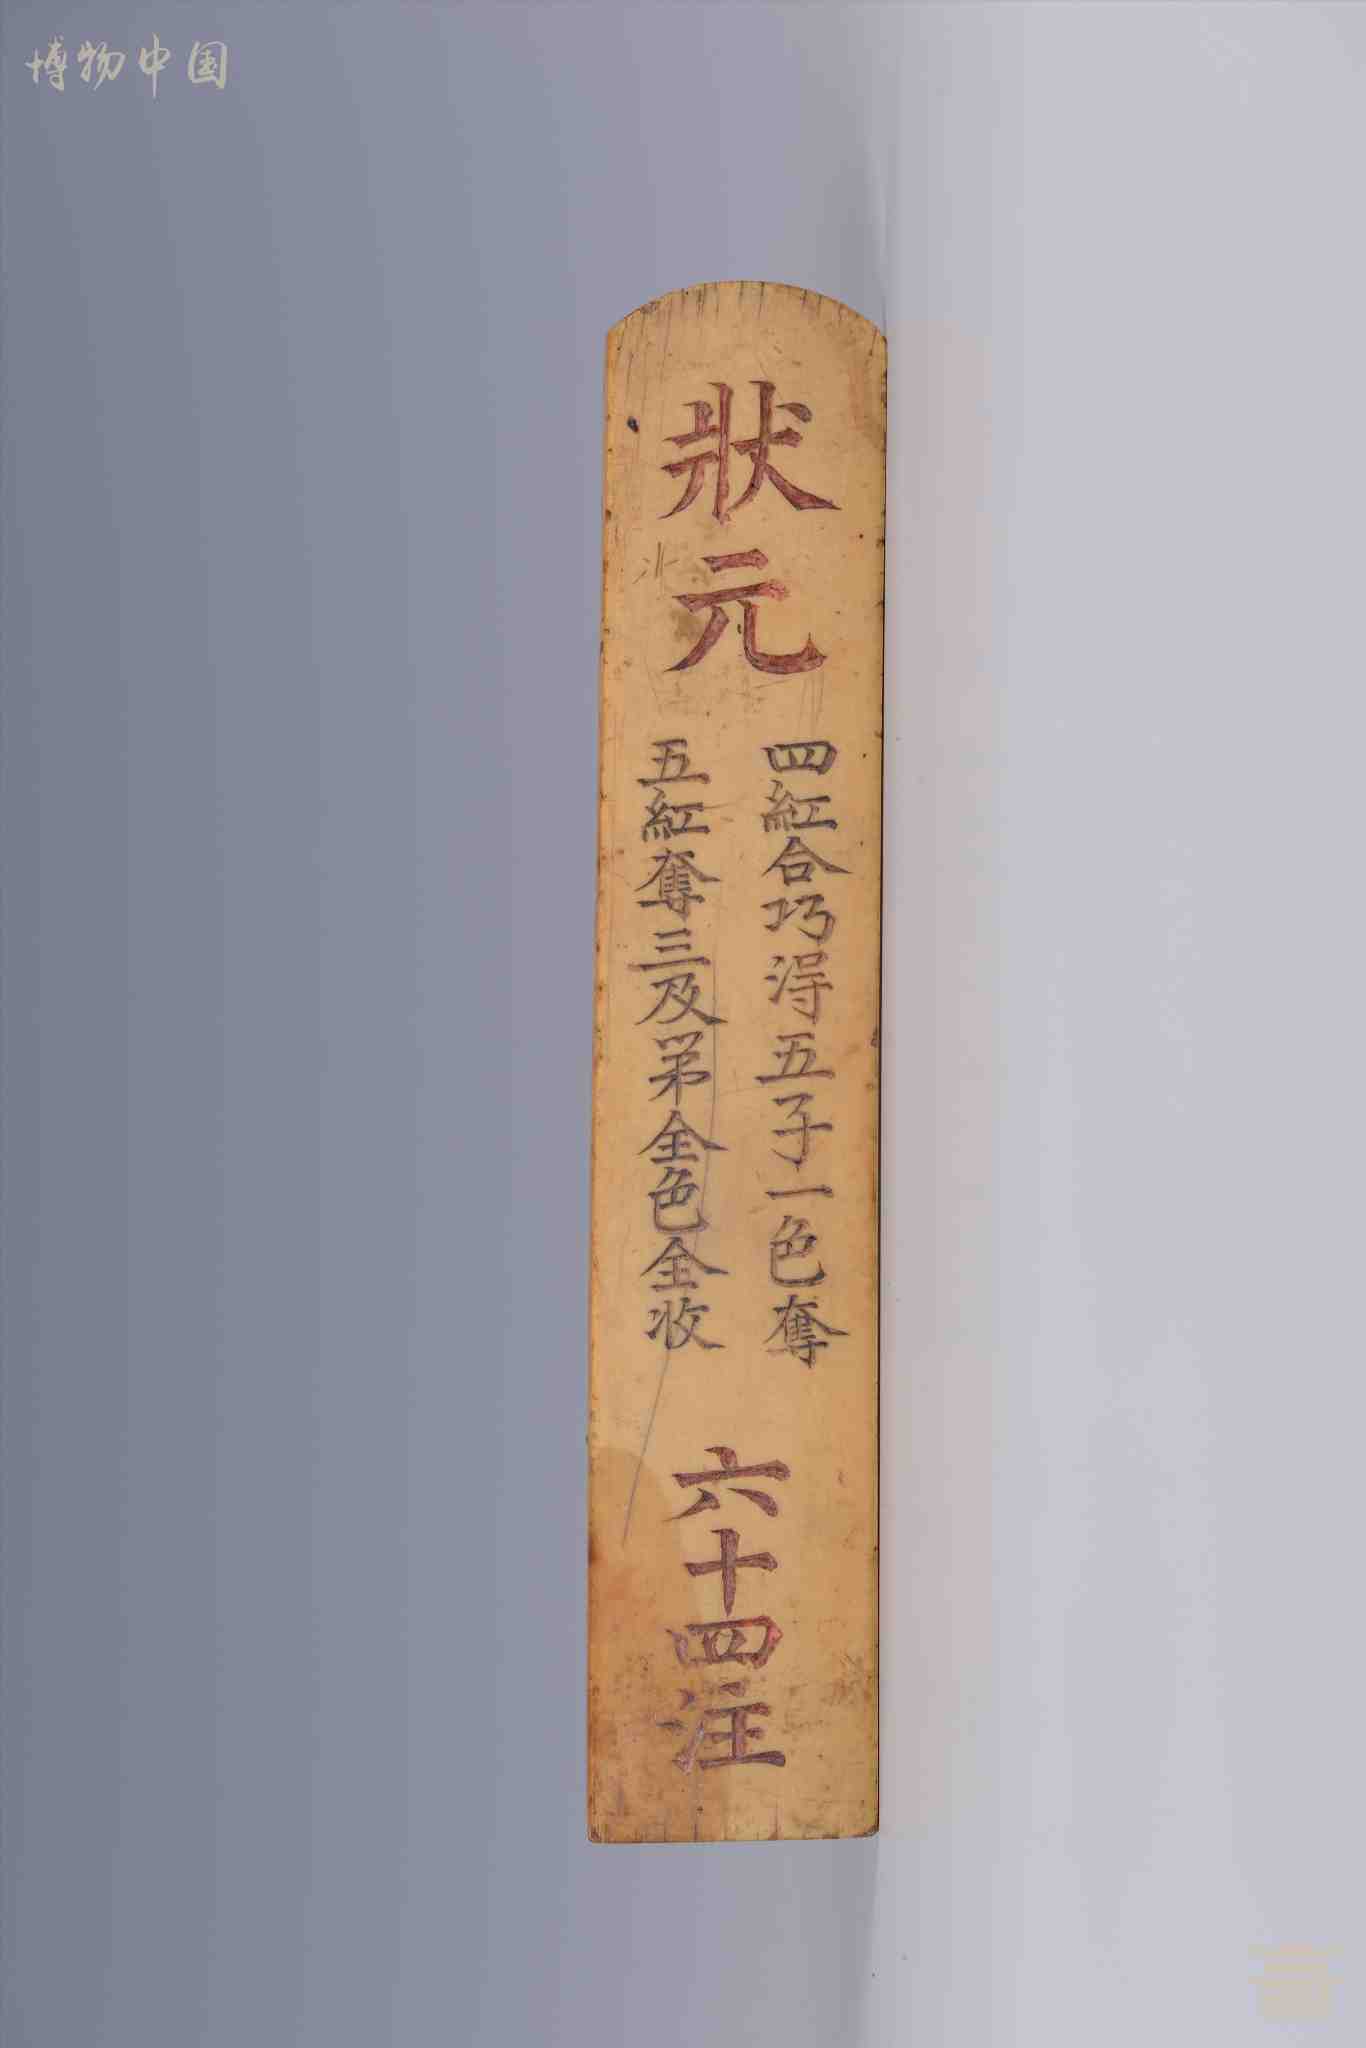 博物中国
狀元
四紅合巧淂五子一色奪
五紅奪三及苐全色全收
六十四注